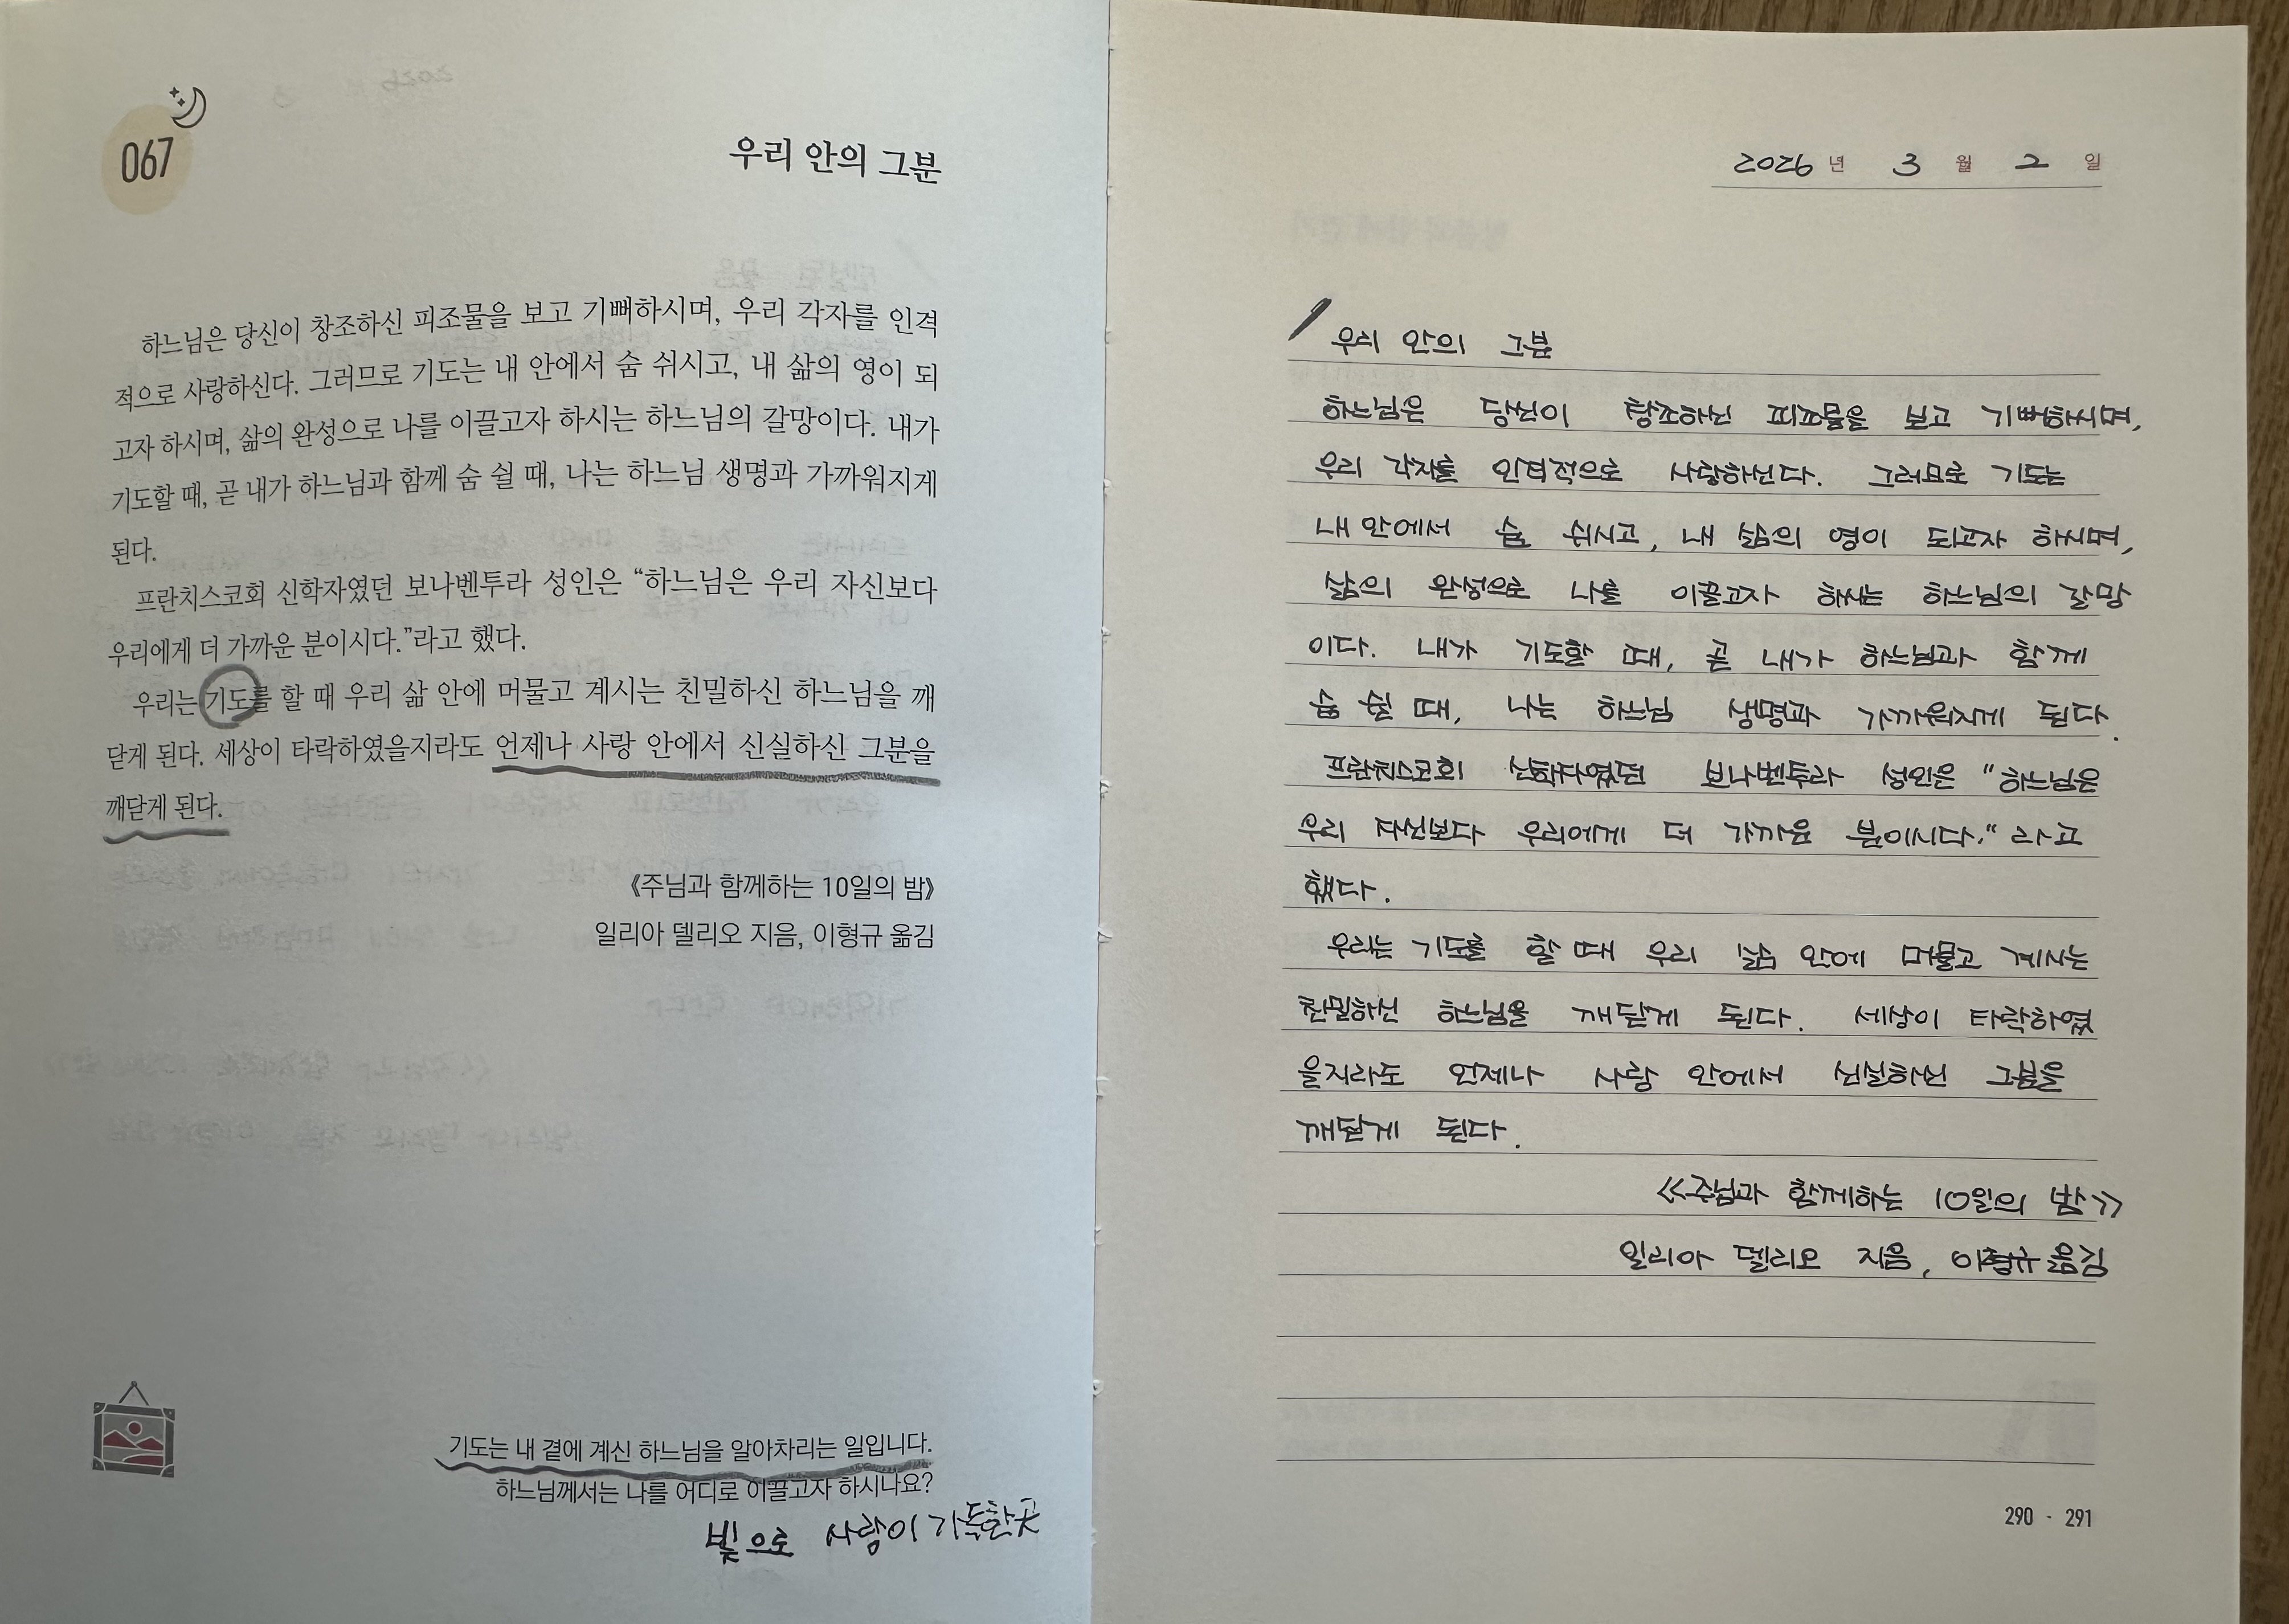 067
우리 안의 그분
하느님은 당신이 창조하신 피조물을 보고 기뻐하시며, 우리 각자를 인격
적으로 사랑하신다. 그러므로 기도는 내 안에서 숨 쉬시고, 내 삶의 영이 되
고자 하시며, 삶의 완성으로 나를 이끌고자 하시는 하느님의 갈망이다. 내가
기도할 때, 곧 내가 하느님과 함께 숨 쉴 때, 나는 하느님 생명과 가까워지게
된다.
프란치스코회 신학자였던 보나벤투라 성인은 “하느님은 우리 자신보다
우리에게 더 가까운 분이시다.”라고 했다.
우리는 기도를 할 때 우리 삶 안에 머물고 계시는 친밀하신 하느님을 깨
닫게 된다. 세상이 타락하였을지라도 언제나 사랑 안에서 신실하신 그분을
깨닫게 된다.
《주님과 함께하는 10일의 밤》
일리아 델리오 지음, 이형규 옮김
기도는 내 곁에 계신 하느님을 알아차리는 일입니다.
하느님께서는 나를 어디로 이끌고자 하시나요?
빛으로 사랑이 가득한 곳
2026 년 3 월 2 일
우리 안의 그분
하느님은 당신이 창조하신 피조물을 보고 기뻐하시며,
우리 각자를 인격적으로 사랑하신다. 그러므로 기도는
내 안에서 숨 쉬시고, 내 삶의 영이 되고자 하시며,
삶의 완성으로 나를 이끌고자 하시는 하느님의 갈망
이다. 내가 기도할 때, 곧 내가 하느님과 함께
숨 쉴 때, 나는 하느님 생명과 가까워지게 된다.
프란치스코회 신학자였던 보나벤투라 성인은 "하느님은
우리 자신보다 우리에게 더 가까운 분이시다." 라고
했다.
우리는 기도를 할 때 우리 삶 안에 머물고 계시는
친밀하신 하느님을 깨닫게 된다. 세상이 타락하였
을지라도 언제나 사랑 안에서 신실하신 그분을
깨닫게 된다.
<<주님과 함께하는 10일의 밤>>
일리아 델리오 지음, 이형규 옮김
290 - 291